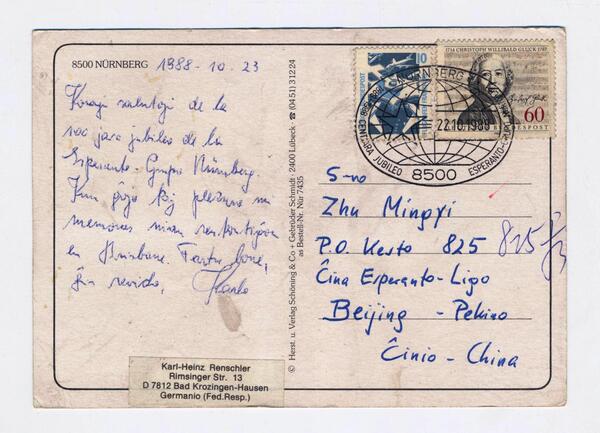 8500 NÜRNBERG
1988-10-23
Koraj salutoj de la
100 jara jubileo de la
Esperanto-Grupo Nürnberg.
Kun ĝojo kaj plezuro mi
memoras nian renkontiĝon
en Brisbane. Fartu bone,
ĝis revido,
Karl-Heinz Renschler
Rimsinger Str. 13
D 7812 Bad Krozingen-Hausen
Germanio (Fed.Resp.)
© Herst. u. Verlag Schöning & Co + Gebrüder Schmidt · 2400 Lübeck · ☎ (04 51) 3 12 24
as Bestell-Nr. Nür 7435
10
1714 CHRISTOPH WILLIBALD GLUCK 1787
60
NÜRNBERG
22.10.1988
8500
JUBILEO
ESPERANTO-
S-no
Zhu Mingyi
P.O. Kesto 825
825
Ĉina Esperanto-Ligo
Beijing - Pekino
Ĉinio - China